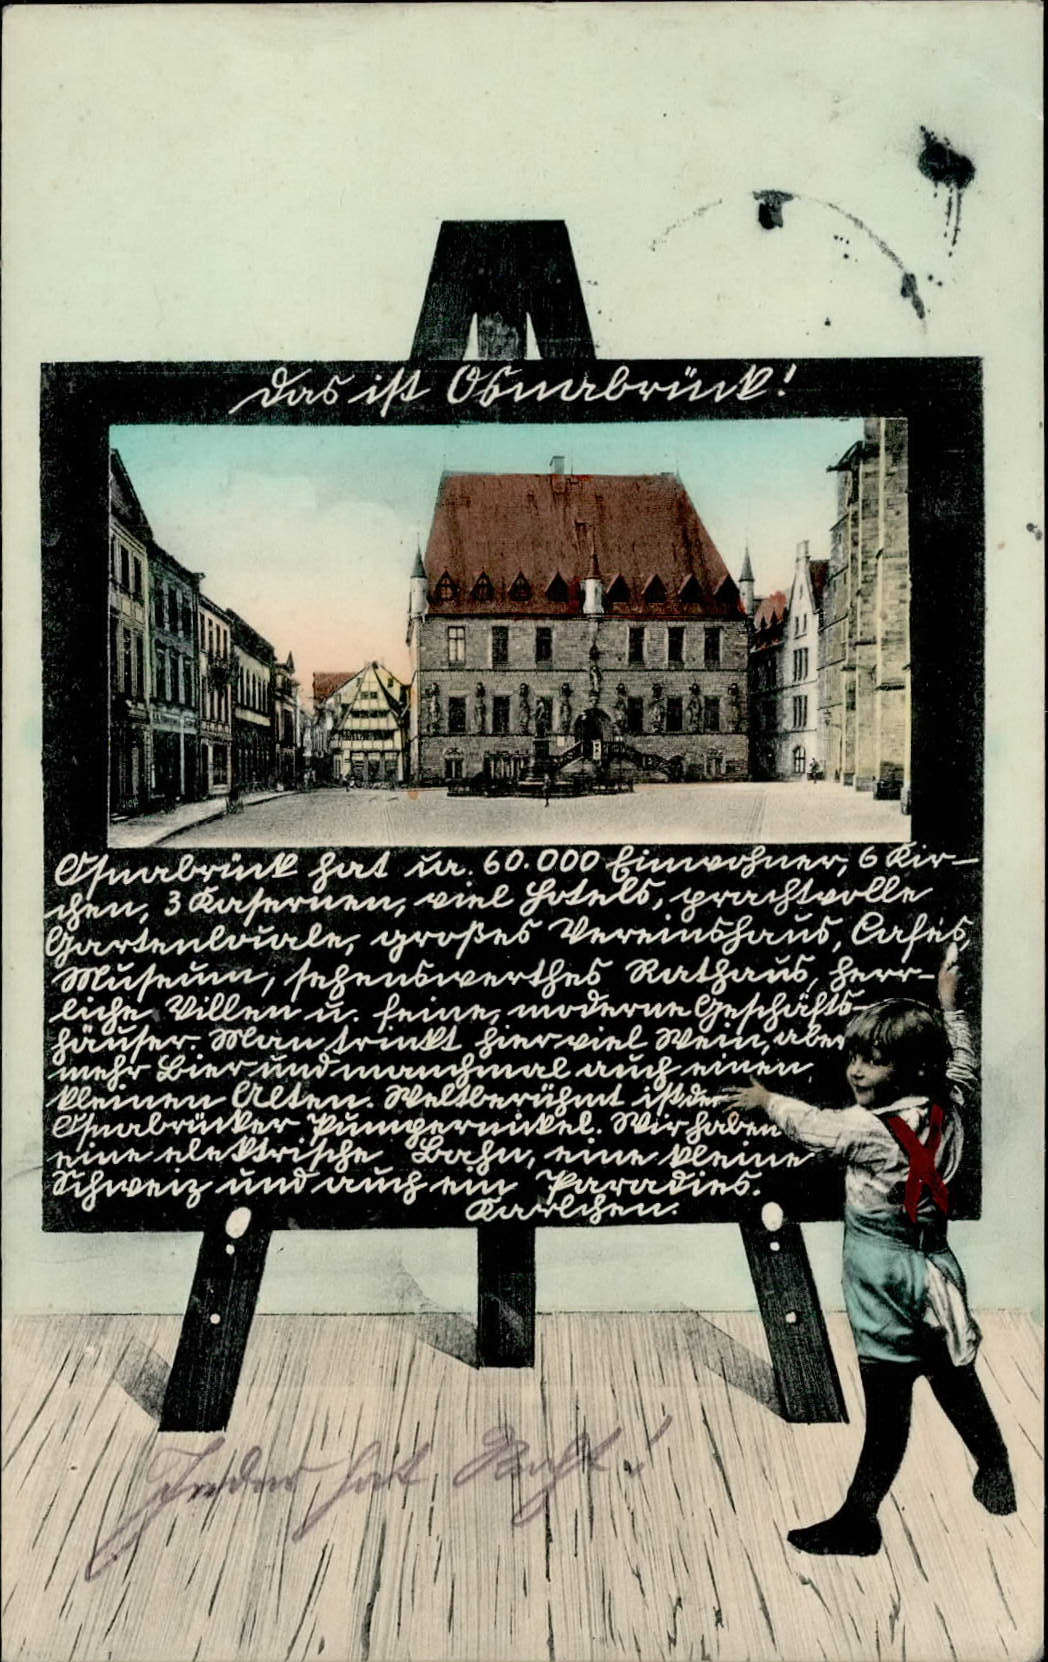 Das ist Osnabrück!
Osnabrück hat ca. 60.000 Einwohner, 6 Kir-
chen, 3 Kasernen, viel Hotels, prachtvolle
Gartenlocale, großes Vereinshaus, Cafés,
Museum, sehenswerthes Rathaus, herr-
liche Villen u. feine, moderne Geschäfts-
häuser. Man trinkt hier viel Wein, aber
mehr Bier und manchmal auch einen
kleinen Alten. Weltberühmt ist der
Osnabrücker Pumpernickel. Wir haben
eine elektrische Bahn, eine kleine
Schweiz und auch ein Paradies.
Karlchen.
Jeder hat Recht!